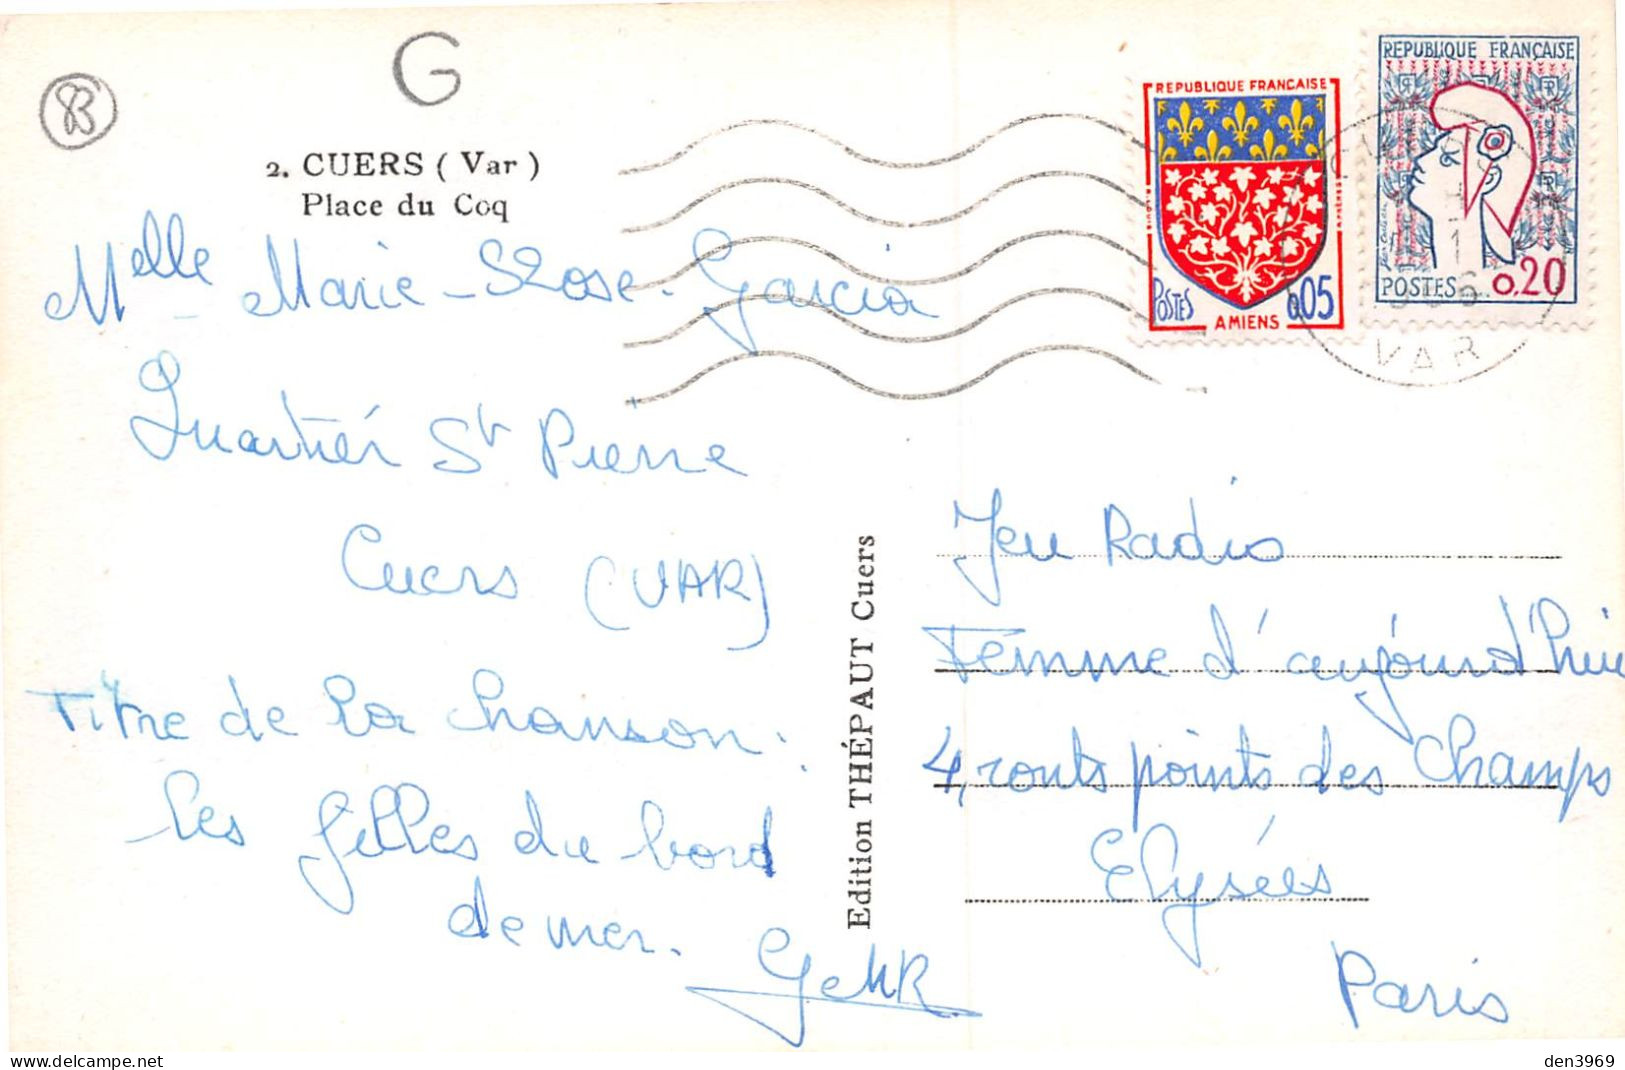 83
G
2. CUERS (Var)
Place du Coq
REPUBLIQUE FRANÇAISE
POSTES
0,05
AMIENS
REPUBLIQUE FRANÇAISE
POSTES
0,20
VAR
Melle Marie-Rose Garcia
Quartier St Pierre
Cuers (VAR)
Titre de la chanson:
Les filles du bord
de mer.
Edition THÉPAUT Cuers
Jeu Radio
Femme d'aujourd'hui
4, ronts points des Champs
Elysées
Paris
den3969